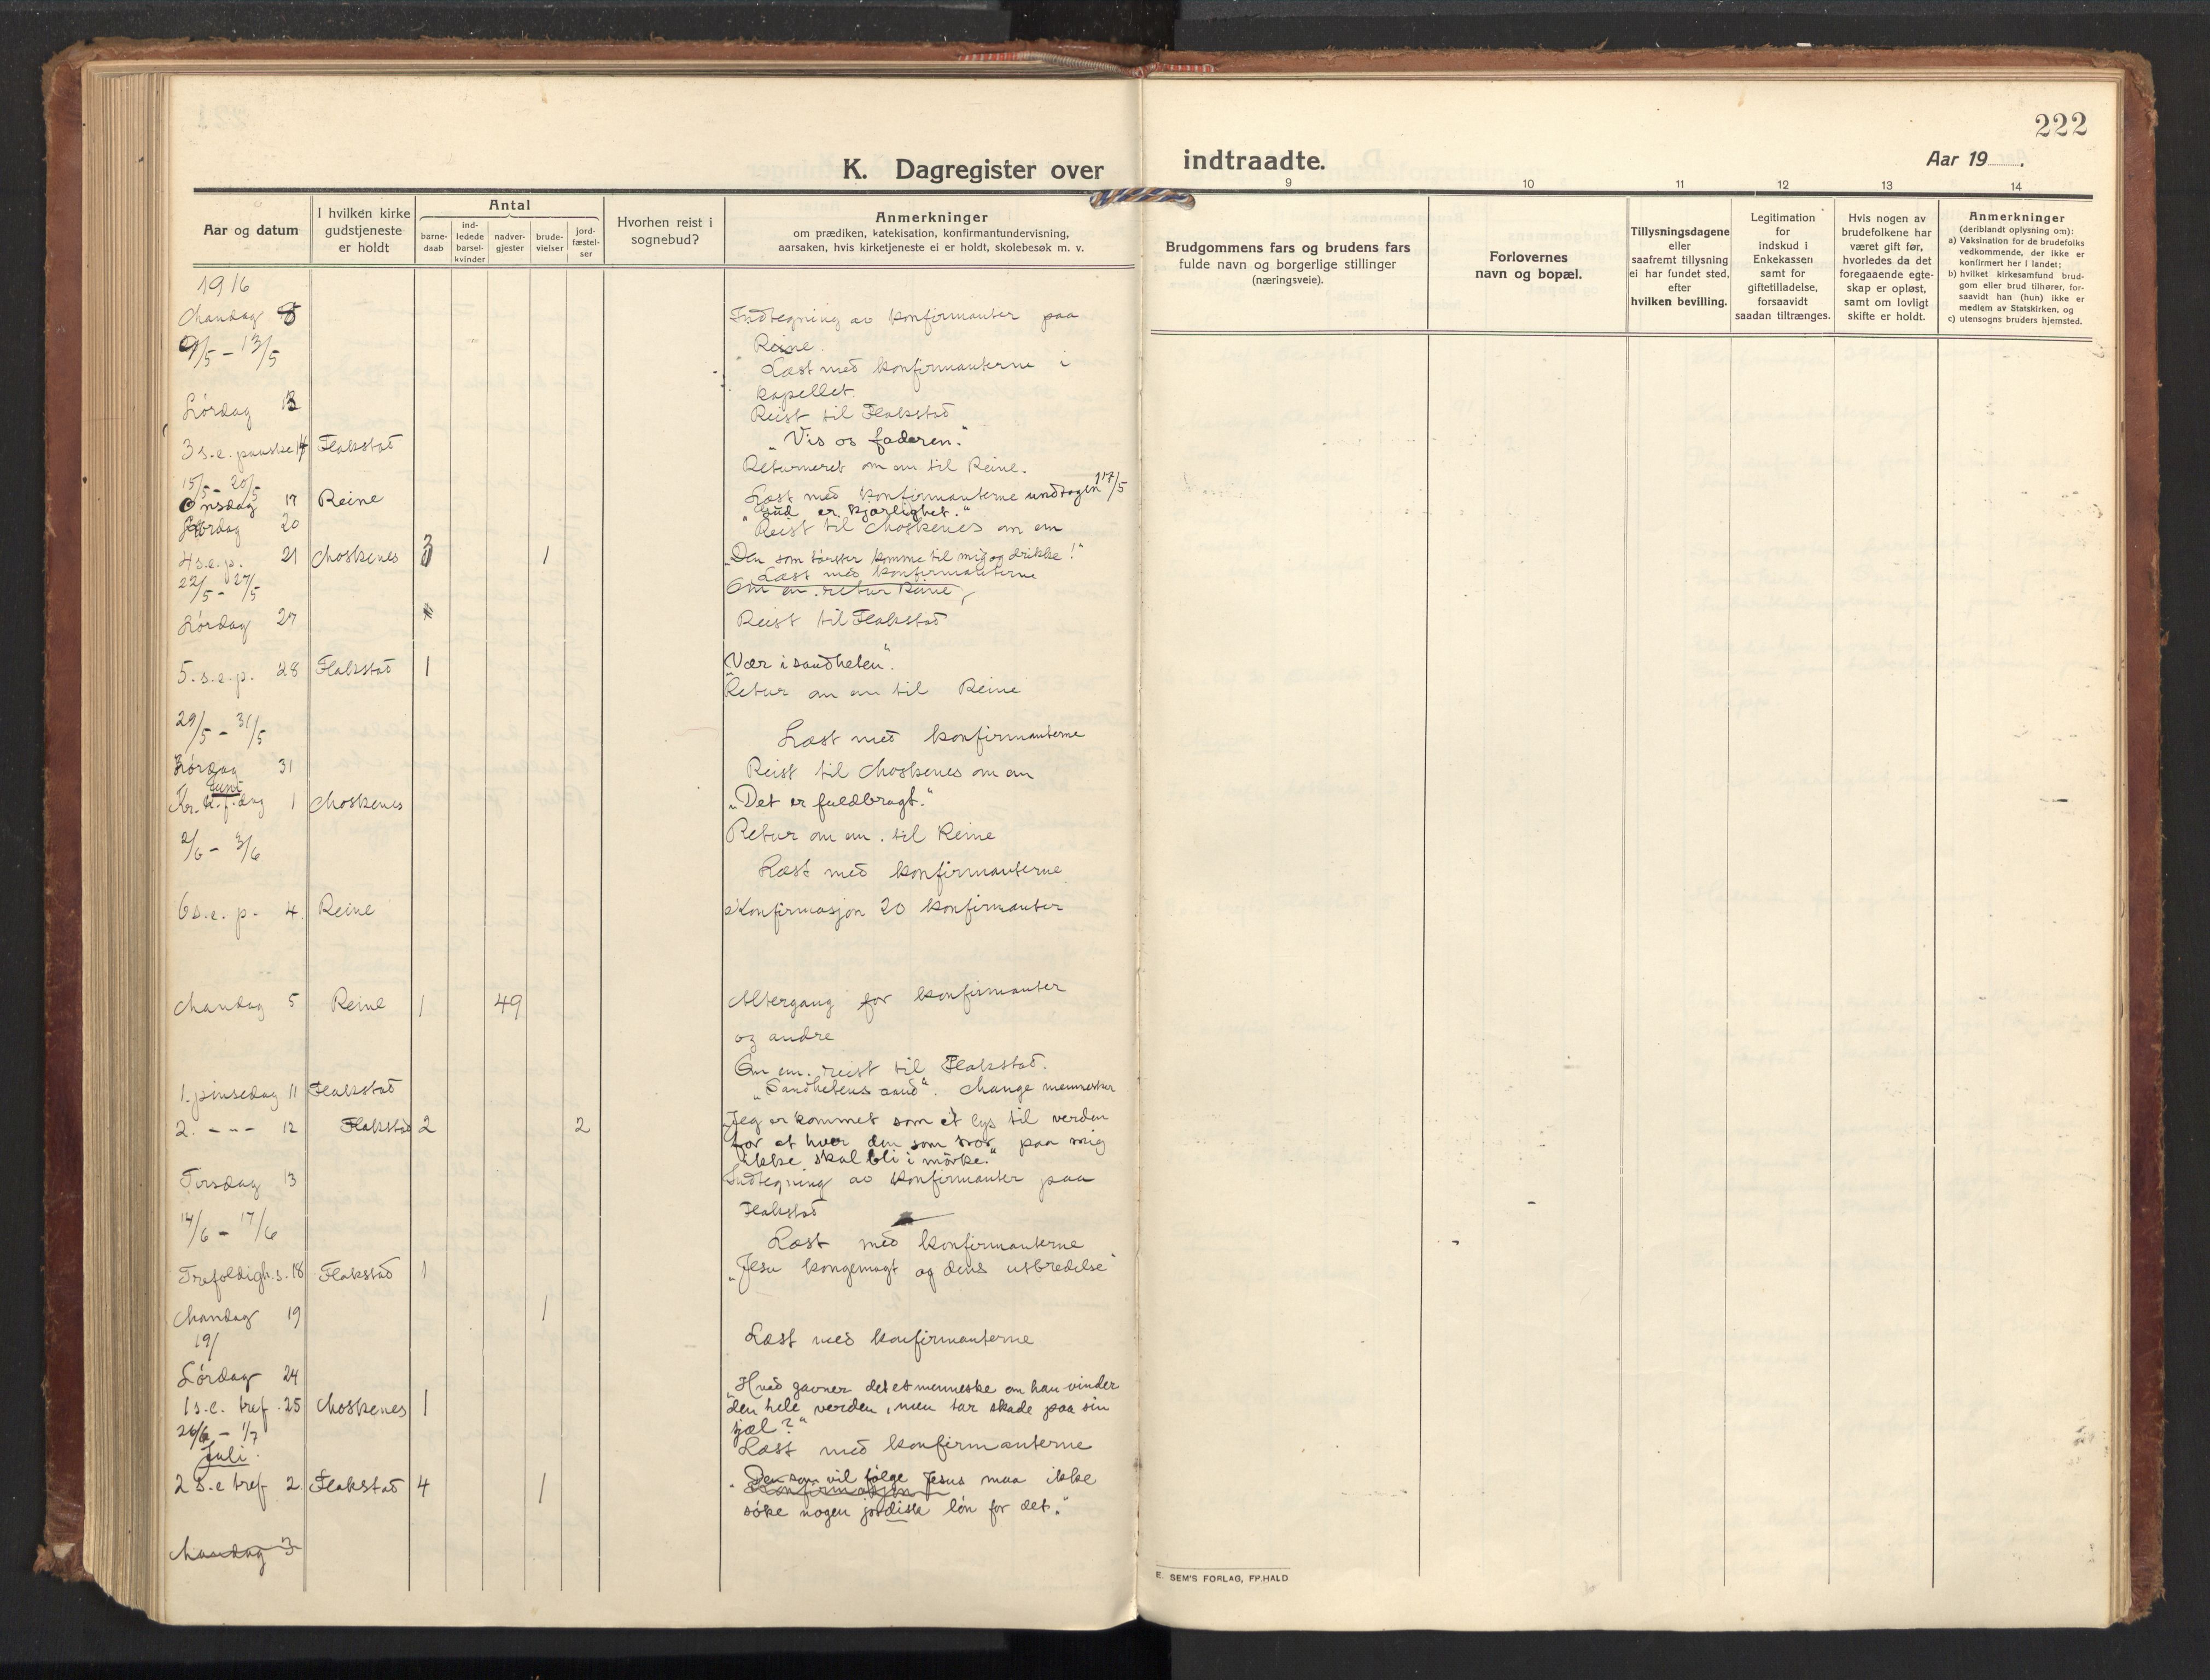 222
K. Dagregister over
indtraadte.
Aar 19 .
Aar og datum
I hvilken kirke gudstjeneste er holdt
Antal
barne-daab
ind-ledede barsel-kvinder
nadver-gjester
brude-vielser
jord-fæstel-ser
Hvorhen reist i sognebud?
Anmerkninger
om prædiken, katekisation, konfirmantundervisning,
aarsaken, hvis kirketjeneste ei er holdt, skolebesøk m. v.
1916
Mandag 8 Indtegning av konfirmanter paa
Reine.
9/5 – 13/5 Læst med konfirmanterne i
kapellet.
Lørdag 13 Reist til Flakstad
3 s.e. paaske 14 Flakstad „Vis os faderen."
Returneret om em til Reine.
15/5 – 20/5 Læst med konfirmanterne undtagen 17/5
Onsdag 17 Reine „Gud er kjærlighet."
Lørdag 20 Reist til Moskenes om em
4 s.e.p. 21 Moskenes 3 1 „Den som tørster komme til mig og drikke!"
22/5 – 27/5 Læst med konfirmanterne
Om em. retur Reine
Lørdag 27 Reist til Flakstad
5. s.e.p. 28 Flakstad 1 „Vær i sandheten".
Retur om em til Reine
29/5 – 31/5 Læst med konfirmanterne
31 Reist til Moskenes om em
Juni
Kr. h.f.dag 1 Moskenes „Det er fuldbragt."
Retur om em. til Reine
2/6 – 3/6 Læst med konfirmanterne
6 s.e. p. 4. Reine Konfirmasjon 20 konfirmanter
Mandag 5 Reine 1 49 Altergang for konfirmanter
og andre
Om em. reist til Flakstad.
1. pinsedag 11 Flakstad „Sandhetens aand". Mange mennesker
2. – „ – 12 Flakstad 2 2 „Jeg er kommet som et lys til verden
for at hver den som tror paa mig
ikke skal bli i mörke."
Tirsdag 13 Indtegning av konfirmanter paa
Flakstad
14/6 – 17/6 Læst med konfirmanterne
Trefoldigh.s. 18 Flakstad 1 „Jesu kongemagt og dens utbredelse"
Mandag 19 1
19/ Læst med konfirmanterne
Lørdag 24
1 s.e. tref. 25 Moskenes 1 „Hvad gavner det et menneske om han vinder
den hele verden, men tar skade paa sin
sjæl?"
26/6 – 1/7 Læst med konfirmanterne
Juli.
2 s.e tref 2. Flakstad 4 1 „Den som vil følge Jesus maa ikke
Konfirmasjon
söke nogen jordisk lön for det."
Mandag 3
9
Brudgommens fars og brudens fars
fulde navn og borgerlige stillinger
(næringsveie).
10
Forlovernes
navn og bopæl.
11
Tillysningsdagene
eller
saafremt tillysning
ei har fundet sted,
efter
hvilken bevilling.
12
Legitimation
for
indskud i
Enkekassen
samt for
giftetilladelse,
forsaavidt
saadan tiltrænges.
13
Hvis nogen av
brudefolkene har
været gift før,
hvorledes da det
foregaaende egte-
skap er opløst,
samt om lovligt
skifte er holdt.
14
Anmerkninger
(deriblandt oplysning om):
a) Vaksination for de brudefolks
vedkommende, der ikke er
konfirmert her i landet;
b) hvilket kirkesamfund brud-
gom eller brud tilhører, for-
saavidt han (hun) ikke er
medlem av Statskirken, og
c) utensogns bruders hjemsted.
E. SEM'S FORLAG, FP.HALD